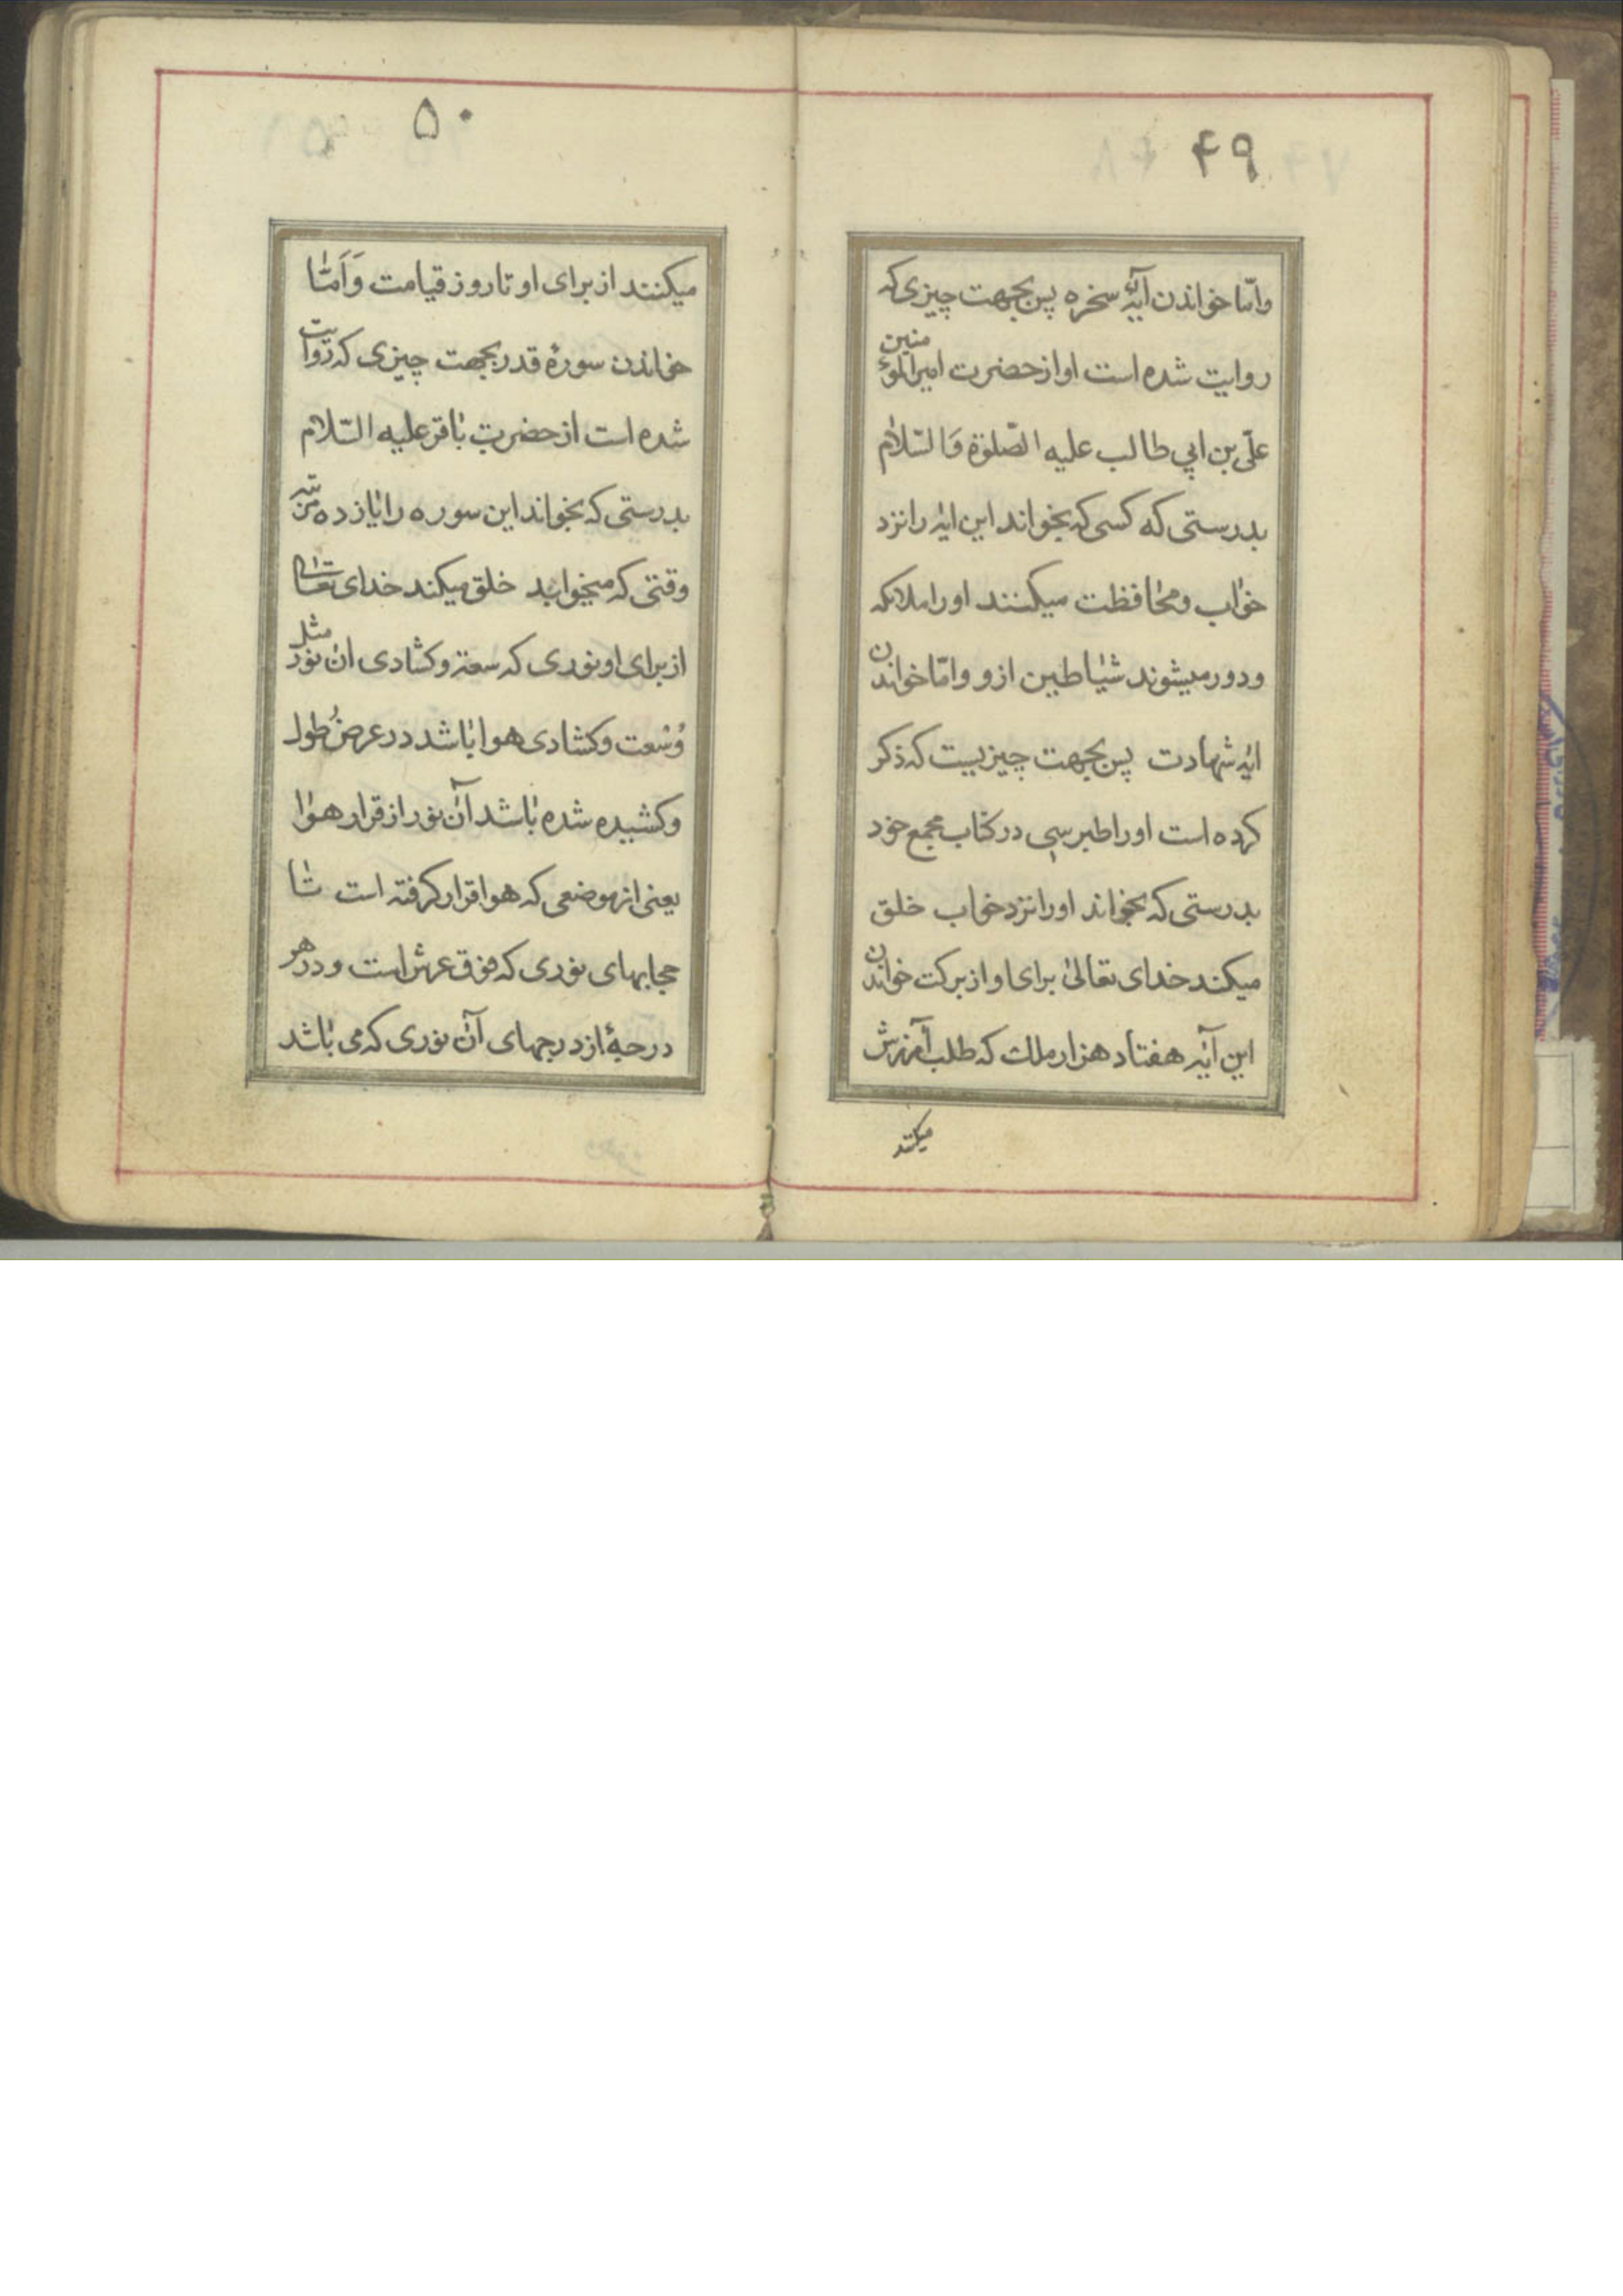 ۴۹
وامّا خواندن آیهٔ سخره پس بجهت چیزی که
روایت شده است او از حضرت امیرالمؤمنین
علی بن ابی طالب علیه الصّلوة وَالسّلام
بدرستی که کسی که بخواند این ایه را نزد
خواب و محافظت میکنند او را ملائکه
و دور میشوند شیاطین ازو و امّا خواندن
ایه شهادت پس بجهت چیزیست که ذکر
کرده است او را طبرسی در کتاب مجمع خود
بدرستی که بخواند او را نزد خواب خلق
میکند خدای تعالی برای او از برکت خواندن
این آیه هفتاد هزار ملك که طلب آمرزش
میکنند
۵۰
میکنند از برای او تا روز قیامت وَاَمّا
خواندن سورهٔ قدر بجهت چیزی که روایت
شده است از حضرت باقر علیه السّلام
بدرستی که بخواند این سوره را یازده مرتبه
وقتی که میخوابد خلق میکند خدای تعالی
از برای او نوری که سعة و کشادی ان نور مثل
وُسْعت و کشادی هوا باشد در عرض و طول
و کشیده شده باشد آن نور از قرار هوا
یعنی از موضعی که هوا قرار کرفته است تا
حجابهای نوری که فوق عرش است و در هر
درجهٔ از درجهای آن نوری که می باشد